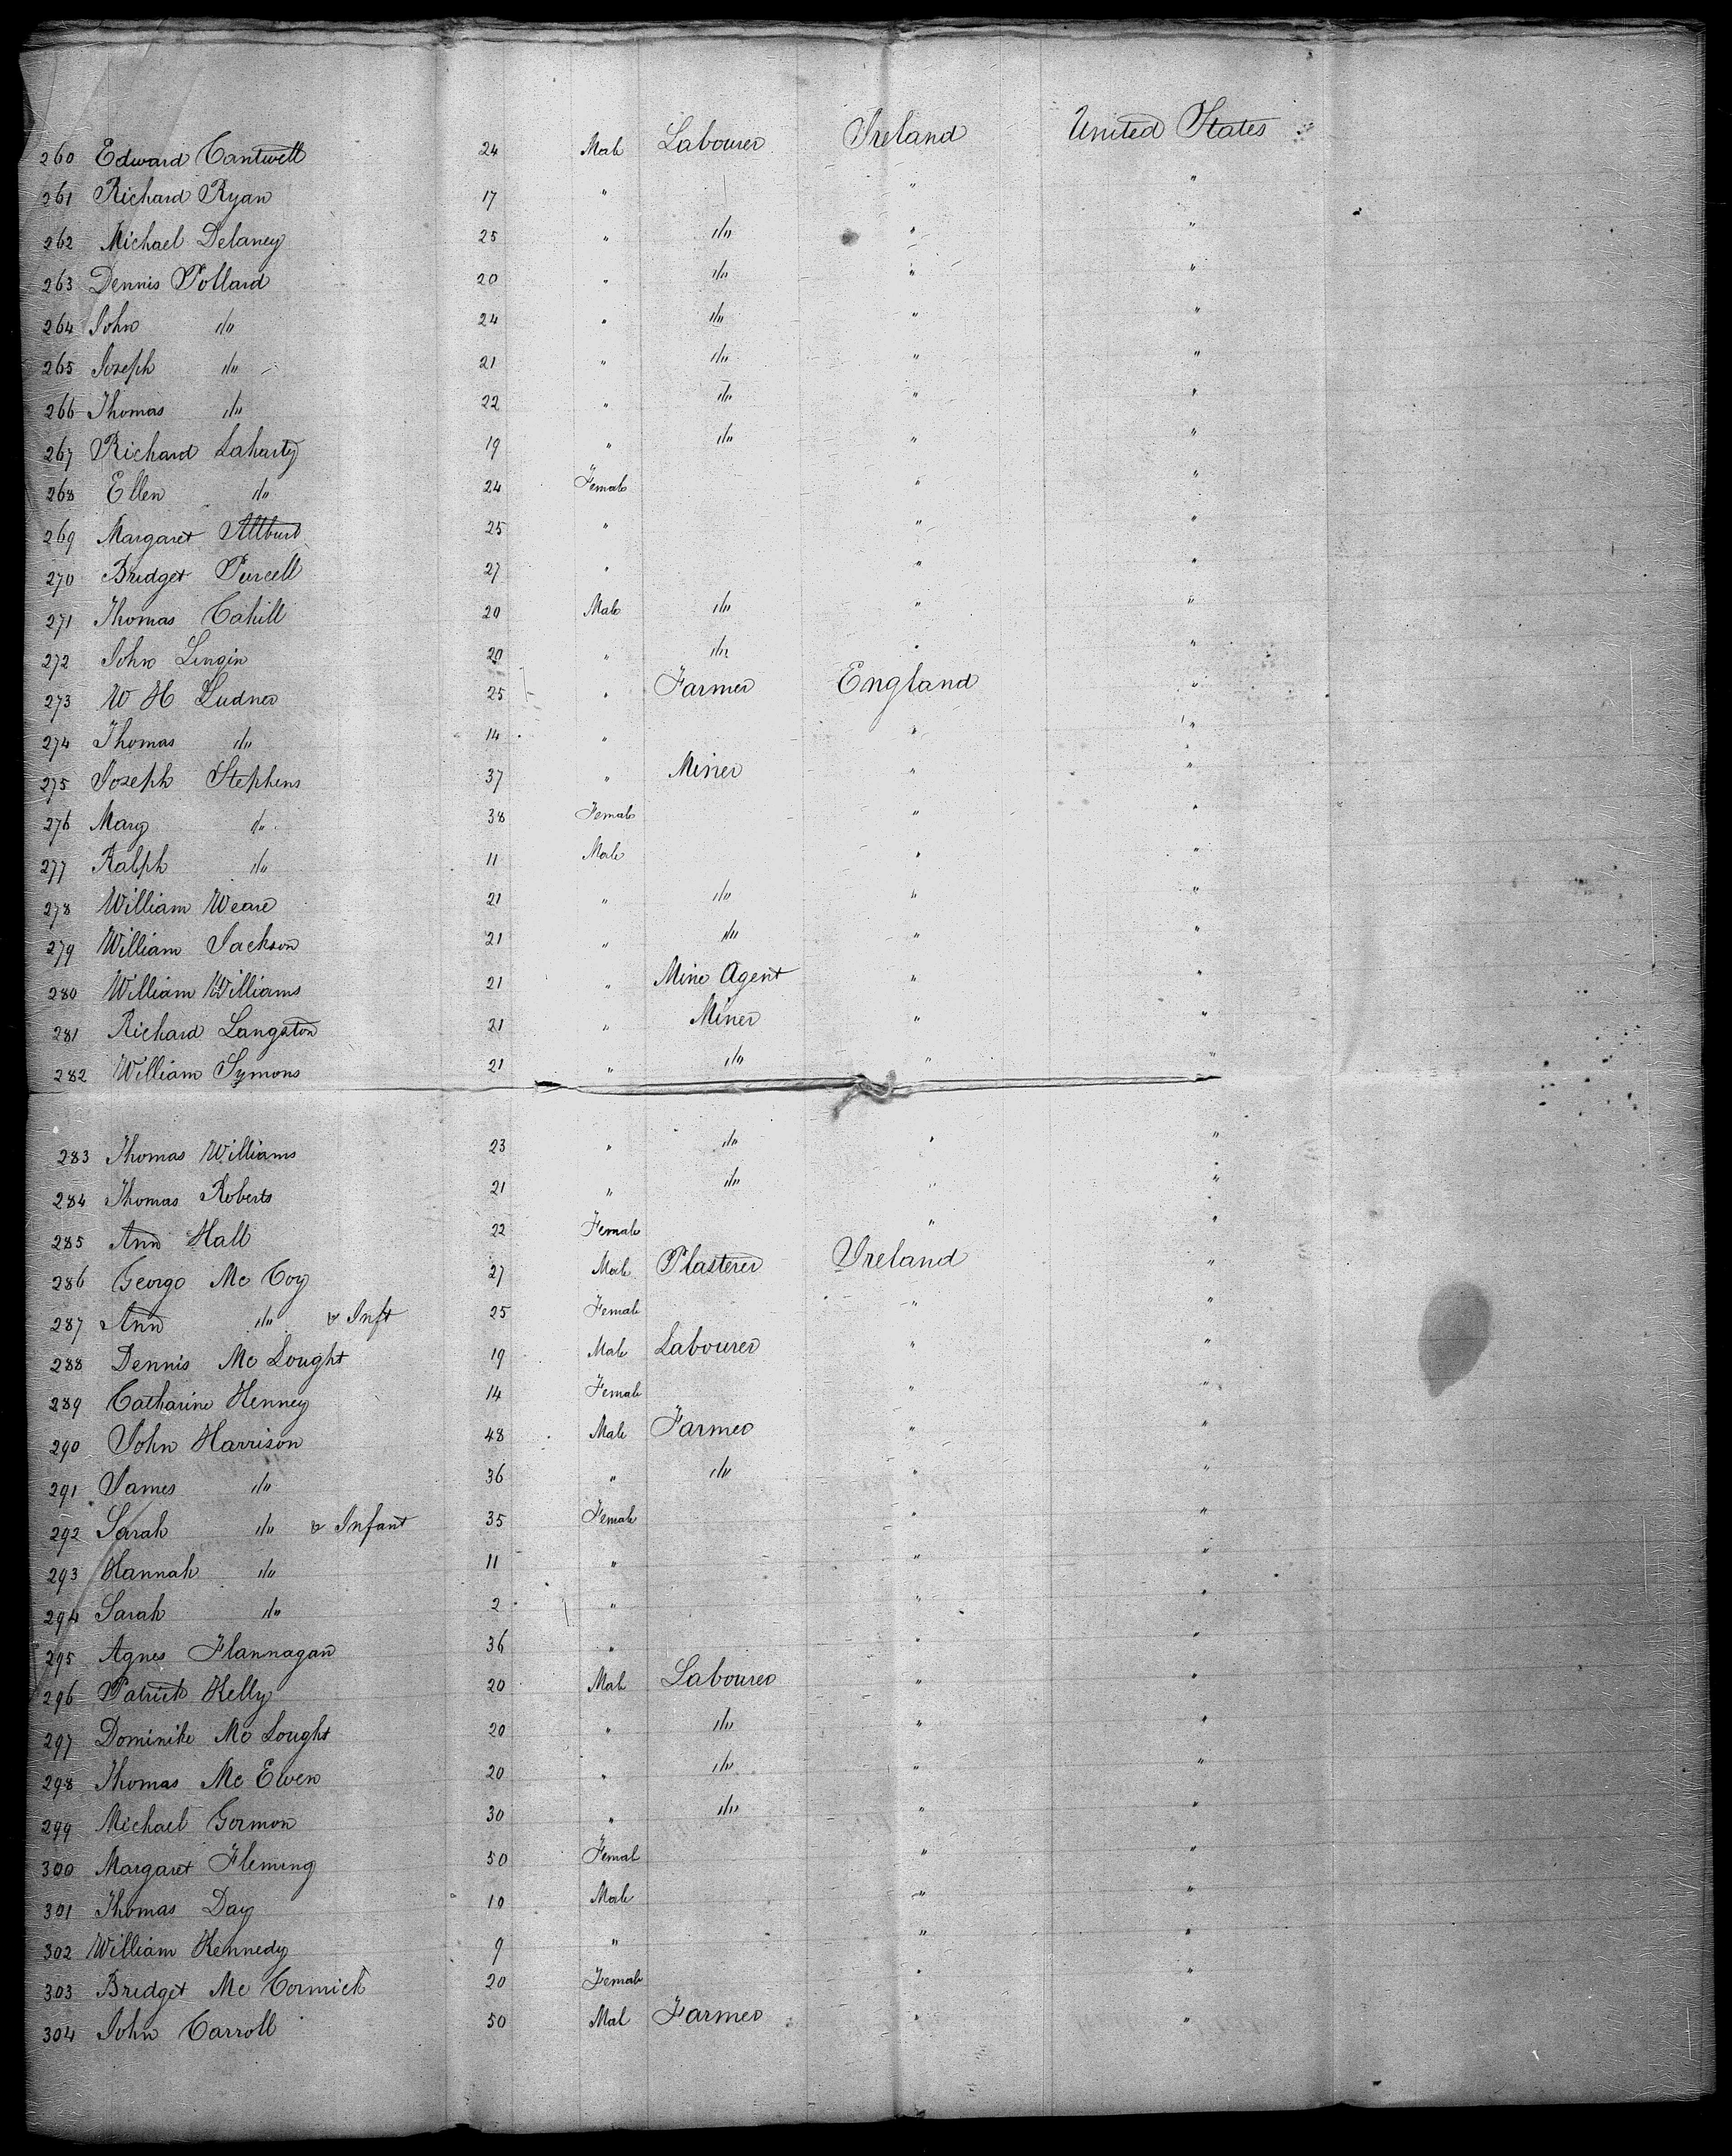 260 Edward Cantwell 24 Male Labourer Ireland United States
261 Richard Ryan 17 " " "
262 Michael Delaney 25 " do " "
263 Dennis Pollard 20 " do " "
264 John do 24 " do " "
265 Joseph do 21 " do " "
266 Thomas do 22 " do " "
267 Richard Laharty 19 " do " "
268 Ellen do 24 Female " "
269 Margaret 25 " " "
270 Bridget Purcell 27 " " "
271 Thomas Cahill 20 Male do " "
272 John Lingin 20 " do " "
273 W H Ludner 25 " Farmer England "
274 Thomas do 14 " " "
275 Joseph Stephens 37 " Miner " "
276 Mary do 38 Female " "
277 Ralph do 11 Male " "
278 William Weare 21 " do " "
279 William Jackson 21 " do " "
280 William Williams 21 " Mine Agent " "
281 Richard Langston 21 " Miner " "
282 William Symons 21 " do " "
283 Thomas Williams 23 " do " "
284 Thomas Roberts 21 " do " "
285 Ann Hall 22 Female " "
286 George Mc Coy 27 Male Plasterer Ireland "
287 Ann do & Inft 25 Female " "
288 Dennis Mc Lought 19 Male Labourer " "
289 Catharine Henney 14 Female " "
290 John Harrison 48 Male Farmer " "
291 James do 36 " do " "
292 Sarah do & Infant 35 Female " "
293 Hannah do 11 " " "
294 Sarah do 2 " " "
295 Agnes Flannagan 36 " " "
296 Patrick Kelly 20 Male Labourer " "
297 Dominike Mc Lought 20 " do " "
298 Thomas Mc Ewen 20 " do " "
299 Michael Gormon 30 " do " "
300 Margaret Fleming 50 Female " "
301 Thomas Day 10 Male " "
302 William Kennedy 9 " " "
303 Bridget Mc Cormick 20 Female " "
304 John Carroll 50 Male Farmer " "